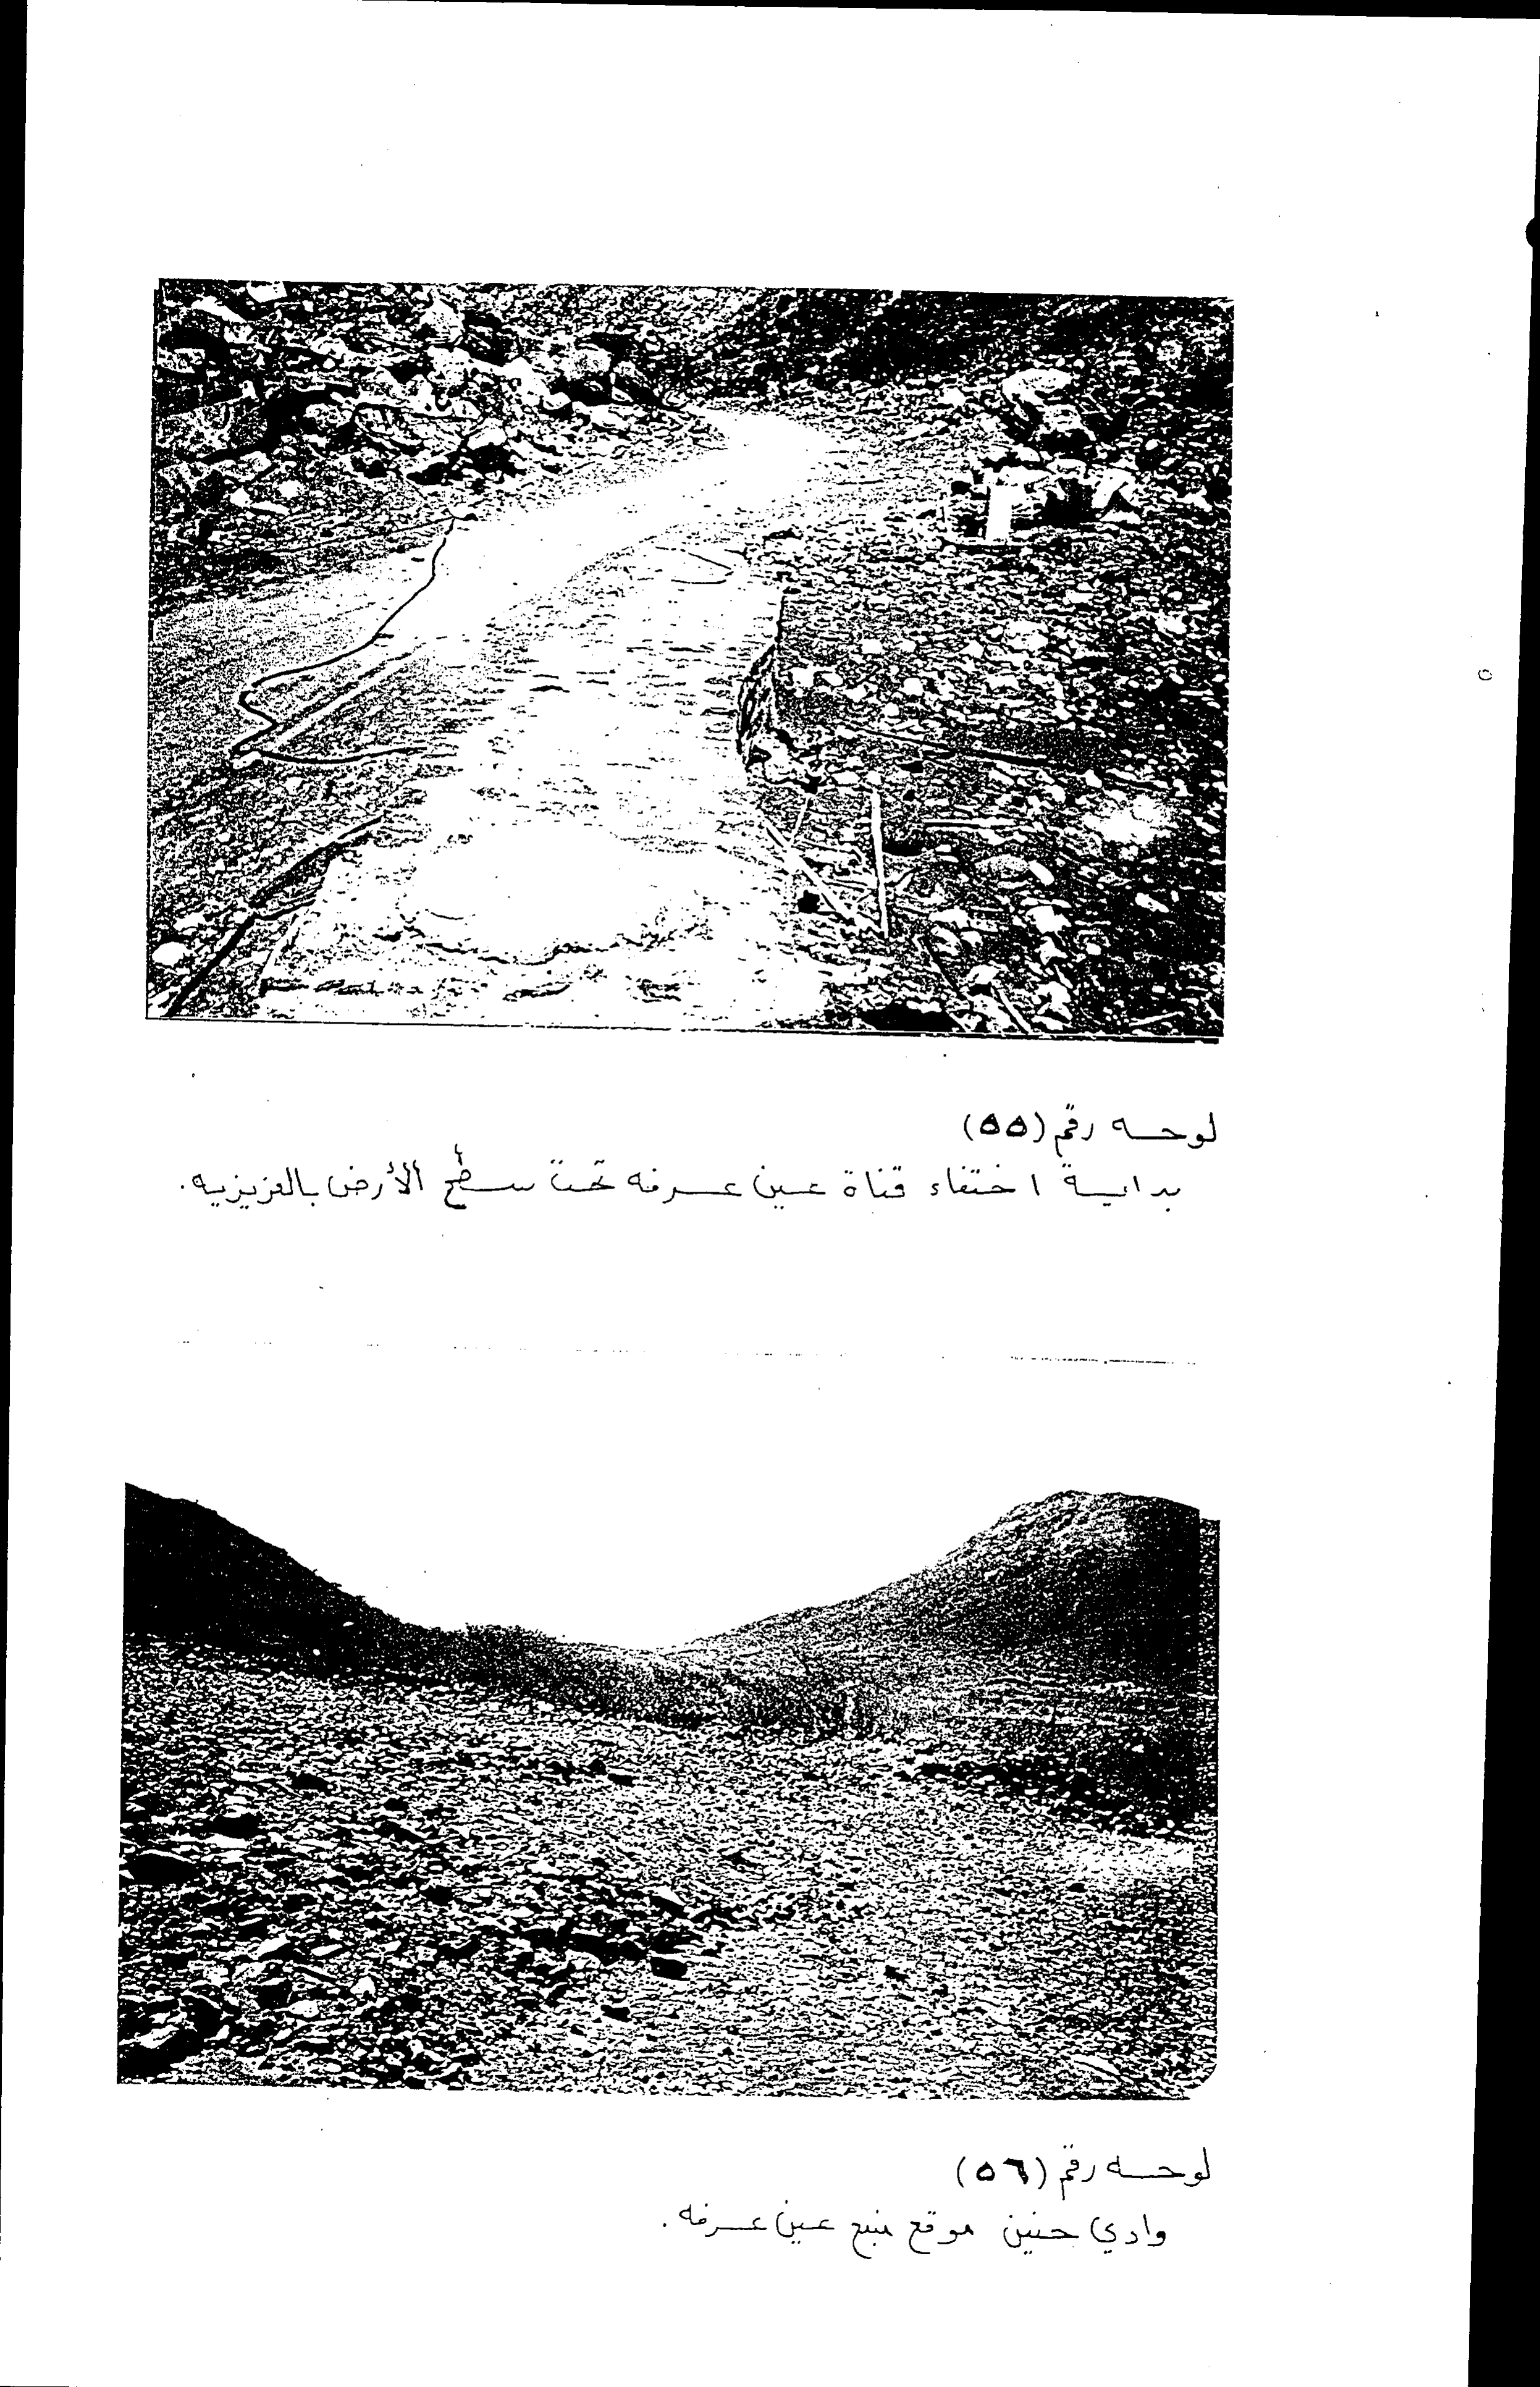 لوحه رقم (٥٥)
بداية اختفاء قناة عين عرفه تحت سطح الأرض بالعزيزيه.
لوحه رقم (٥٦)
وادي حنين موقع منبع عين عرفه.